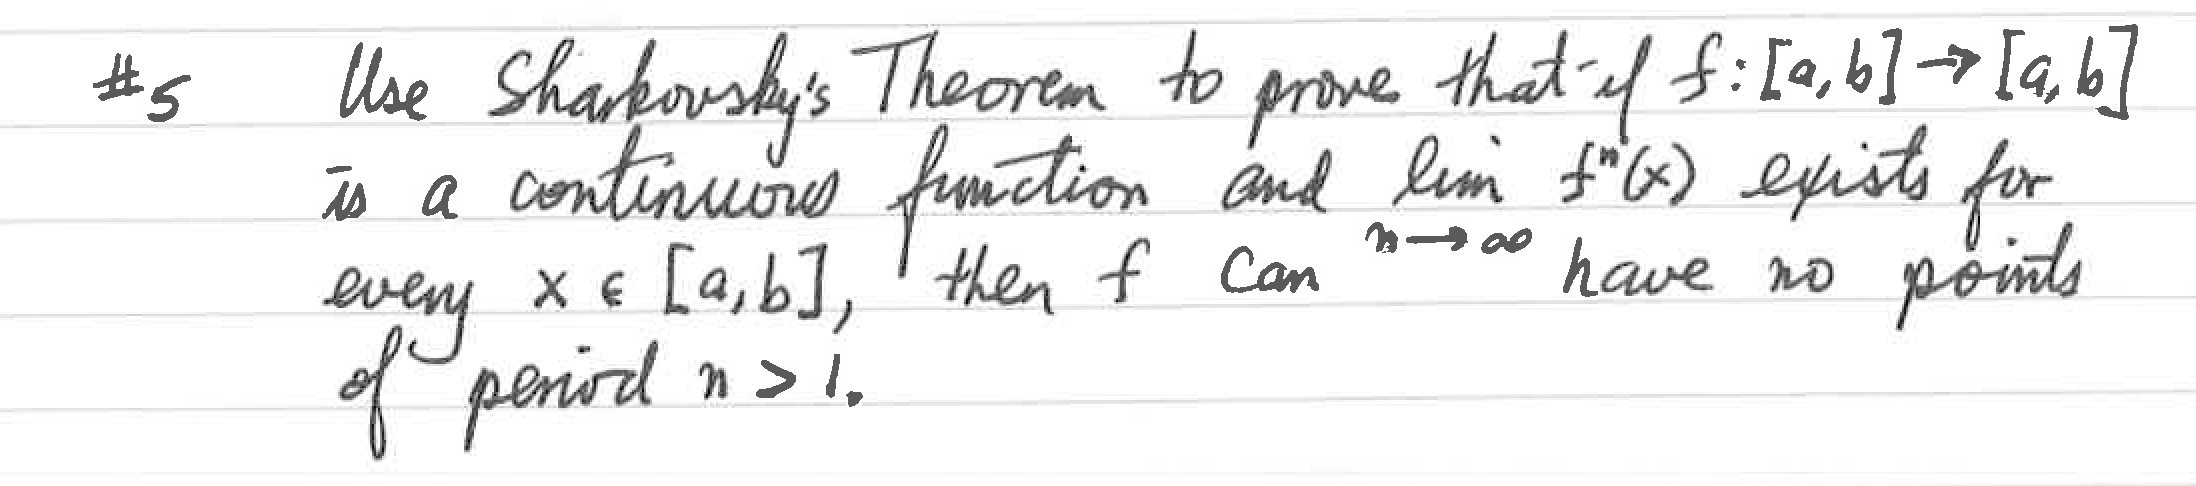 #5 Use Sharkovsky's Theorem to prove that if f: [a,b] → [a,b]
is a continuous function and lim fⁿ(x) exists for
n→∞
every x ϵ [a,b], then f can have no points
of period n > 1.